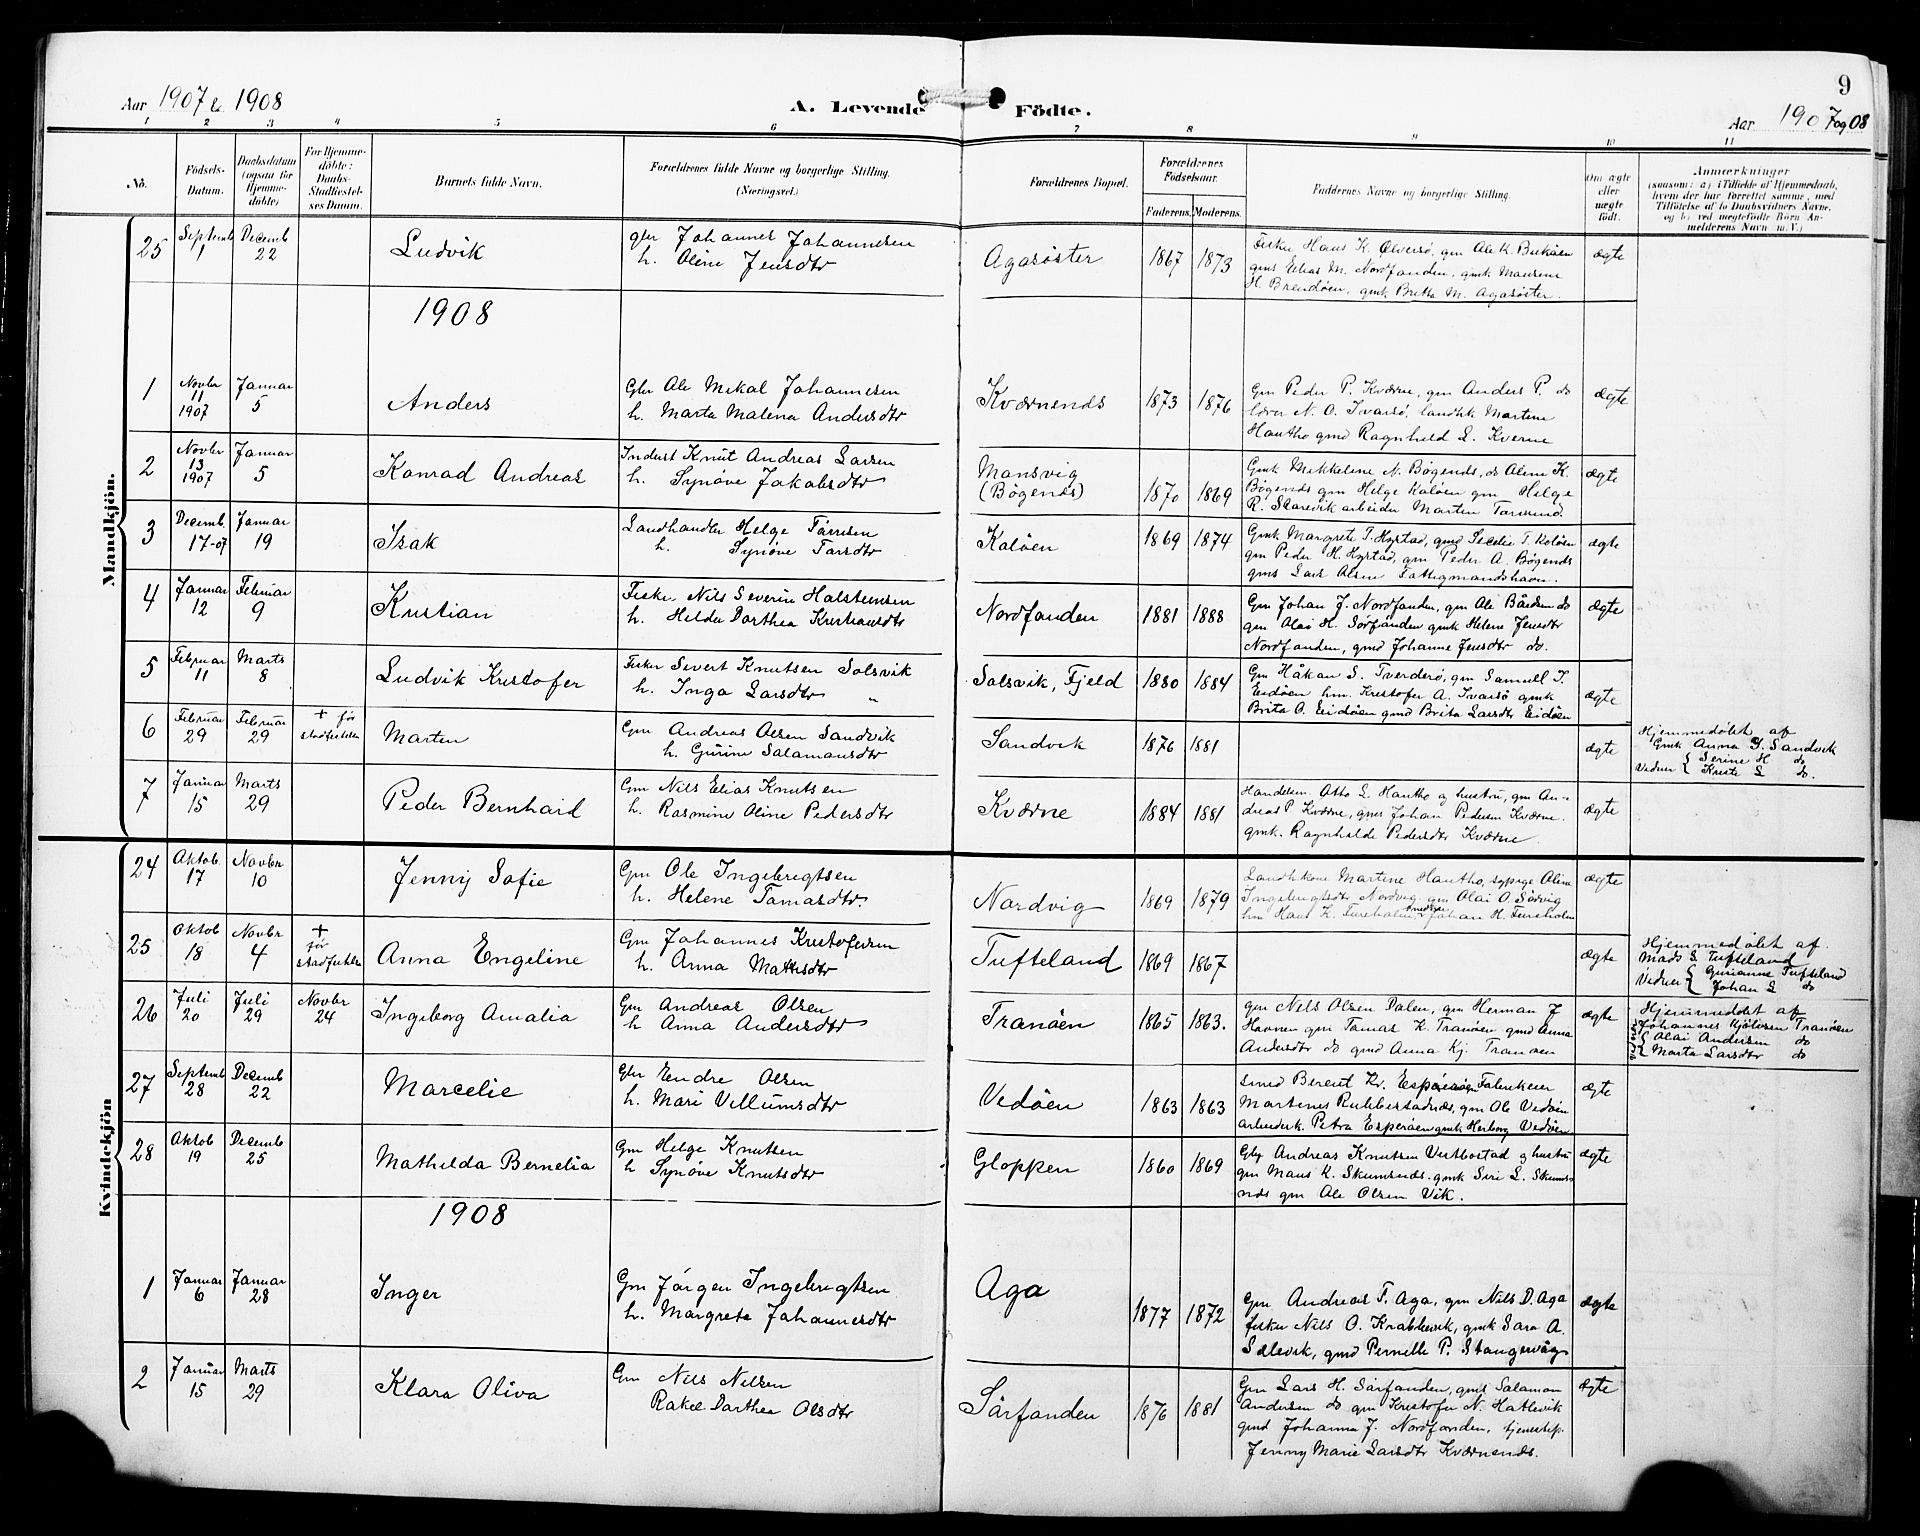 Aar 1907 & 1908
A. Levende Födte.
9
Aar 1907 og 08
1 2 3 4 5 6 7 8 9 10 11
No.
Födsels-Datum.
Daabsdatum (ogsaa for Hjemme-döbte)
For Hjemme-döbte: Daabs-Stadfæstel-ses Datum.
Barnets fulde Navn.
Forældrenes fulde Navne og borgerlige Stilling. (Næringsvei.)
Forældrenes Bopæl.
Forældrenes Födselsaar.
Faderens. Moderens.
Faddernes Navne og borgerlige Stilling.
Om ægte eller uægte födt.
Anmærkninger
(saasom: a) i Tilfælde af Hjemmedaab, hvem der har forrettet samme, med Tilföielse af to Daabsvidners Navne, og b) ved uægtefödte Börn An-melderens Navn m. V.)
Mandkjön.
25 Septemb 1 Decemb 22 Ludvik
gbr Johannes Johannesen
h. Oline Jensdtr
Agasøster 1867 1873
Fisker Hans K. Ølversø, gm Ole K. Bukøen
gms Elias M. Nordfanden, gmk Maurine
H. Brendøen, gmk Britha M. Agasøster.
ægte
1908
1 Novbr 11 1907 Januar 5 Anders
Gbr Ole Mikal Johannesen
h. Marta Malena Andersdtr
Kværnends 1873 1876
Gm Peder P. Kværne, gm Anders P. do
lærer N. O. Ivarsø, landhk Martine
Hautho gmd Ragnhild L. Kverne
ægte
2 Novbr 13 1907 Januar 5 Konrad Andreas
Inderst Knut Andreas Larsen
h. Synøve Jakobsdtr
Mansvig (Bøgends) 1870 1869
Gmk Mikkeline N. Bøgends, do Oline K.
Bøgends gm Helge Kaløen gm Helge
R. Storevik arbeider Martin Tarsund.
ægte
3 Decemb 17-07 Januar 19 Isak
Landhandler Helge Tørresen
h. Synøve Larsdtr
Kaløen 1869 1874
Gmk Margrete T. Hystad, gmd Secelie T. Kaløen
gm Peder H. Hystad, gm Peder A. Bøgends
gms Lars Olsen Fattigmandshavn.
ægte
4 Januar 12 Februar 9 Kristian
Fisker Nils Severin Halsteinsen
h. Helda Dorthea Kristiansdtr
Nordfanden 1881 1888
Gm Johan J. Nordfanden, gm Ole Bårdsen do
gm Olai H. Sørfanden gmk Helene Jensdtr
Nordfanden, gmd Johanne Jensdtr do.
ægte
5 Februar 11 Marts 8 Ludvik Kristofer
Fisker Sivert Knutsen Solsvik
h. Inga Larsdtr "
Solsvik, Fjeld 1880 1884
Gm Håkan S. Tverderø, gm Samuel T.
Eidøen hm. Kristofer A. Ivarsø gmk
Brita O. Eidøen gmd Brita Larsdtr Eidøen
ægte
6 Februar 29 Februar 29 + før stadfestelsen Martin
Gm Andreas Olsen Sandvik
h. Gurine Salamonsdtr
Sandvik 1876 1881
ægte
Hjemmedøbt af
Gmk Anna J. Sandvik
Vidner { Serine H do
Kriste L do.
7 Januar 15 Marts 29 Peder Bernhard
Gm Nils Elias Knutsen
h. Rasmine Oline Pedersdtr
Kværne 1884 1881
Handelsm Otto L. Hautho og hustru, gm An-
dreas P Kværne, gms Johan Pedersen Kværne.
gmk. Ragnhilde Pedersdtr Kværne.
ægte
Kvindekjön
24 Oktob. 17 Novbr 10 Jenny Sofie
Gm Ole Ingebrigtsen
h. Helene Tomasdtr.
Nordvig 1869 1879
Landhkone Martine Hautho, sypige Oline
Ingebrigtsdtr Nordvig, gm Olai O. Sørvig
hm Hans K. Tureholm, Johan H. Tureholm
ægte
25 Oktob 18 Novbr 4 + før stadfestelsen Anna Engeline
Gm Johannes Kristofersen
h. Anna Mattisdtr
Tufteland 1869 1867
ægte
Hjemmedøbt af
Mads S. Tufteland
Vidner { Gurianne Tufteland
Johan L do
26 Juli 20 Juli 29 Novbr 24 Ingeborg Amalia
Gm Andreas Olsen
h Anna Andersdtr
Tranøen 1865 1863.
gm Nils Olsen Dalen, gm Herman J
Havnen gm Tomas K. Tranøen gmd Anna
Andersdtr do gmd Anna Kj. Tranøen
ægte
Hjemmedøbt af
Johannes Kjølsen Tranøen
{ Olai Andersen do
Marta Larsdtr do
27 Septemb 28 Decemb 22 Marcelie
Gbr Endre Olsen
h. Mari Villumsdtr
Vedøen 1863 1863
smed Berent Kr. Esperøen Fabrikeier
Martines Rubbestadnæs, gm Ole Vedøen
arbeiderk. Petra Esperøen gmk Herborg Vedøen
ægte
28 Oktob 19 Decemb 25 Mathilda Bernelia
Gm Helge Knutsen
h Synøve Knutsdtr
Gloppen 1860 1869
Gbr Andreas Knutsen Vestbostad og hustru
gm Mans K. Skumsnds. gmk Siri L. Skums-
nds gm Ole Olsen Vik.
ægte
1908
1 Januar 6 Januar 28 Inger
Gm Jørgen Ingebrigtsen
h. Margreta Johannesdtr
Aga 1877 1872
Gm Andreas T. Aga, gm Nils D. Aga
fisker Nils O. Krabbevik, gmk Sara A.
Selsvik, gmd Pernelle P. Stangervåg
ægte
2 Januar 15 Marts 29 Klara Oliva
Gm Nils Nilsen
Rakel Dorthea Olsdtr
Sørfanden 1876 1881
Gm Lars H. Sørfanden, gms Salamon
Andersen do gm Kristofer N. Hatlevik
gmd Johanna J. Nordfanden, tjenestep.
Jenny Marie Larsdtr Kværnends.
ægte